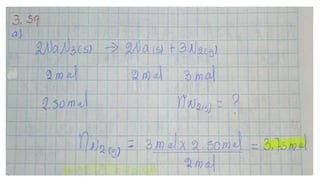 3.59
a)
2NaN3(s) → 2Na(s) + 3N2(g)
2mol 2mol 3mol
2.50mol nN2(g) = ?
nN2(g) = 3mol x 2.50mol / 2mol = 3.75mol